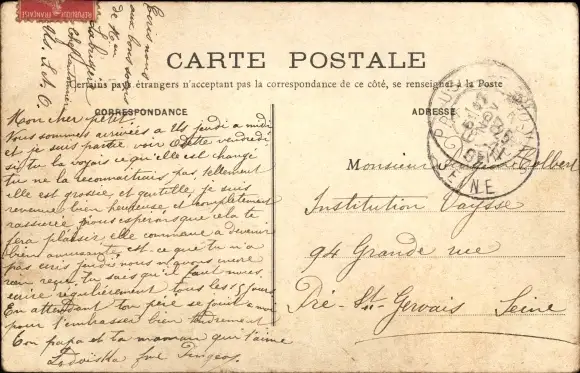 Ecris nous
aux bons soins
de M.
CARTE POSTALE
Certains pays étrangers n'acceptant pas la correspondance de ce côté, se renseigner à la Poste
CORRESPONDANCE
ADRESSE
Mon cher petit,
Vous sommes arrivées à jeudi à midi
et je suis partie voir Odette vendredi
si tu la voyais ce qu'elle est changé
tu ne la reconnaîtrais pas tellement
elle est grossie, et gentille, je suis
revenue bien heureuse, et complètement
rassurée, nous espérons que cela te
fera plaisir, elle commence à devenir
bien amusante, est-ce que tu n'a
pas écris jeudi nous n'avons
rien reçu, tu sais qu'il faut nous
ecrire régulièrement tous les 8 jours
En attendant ton père se joint à moi
pour t'embrasser bien tendrement
Ton papa et ta maman qui t'aime
Monsieur
Institution Vaysse
94 Grande rue
Pré-St-Gervais Seine